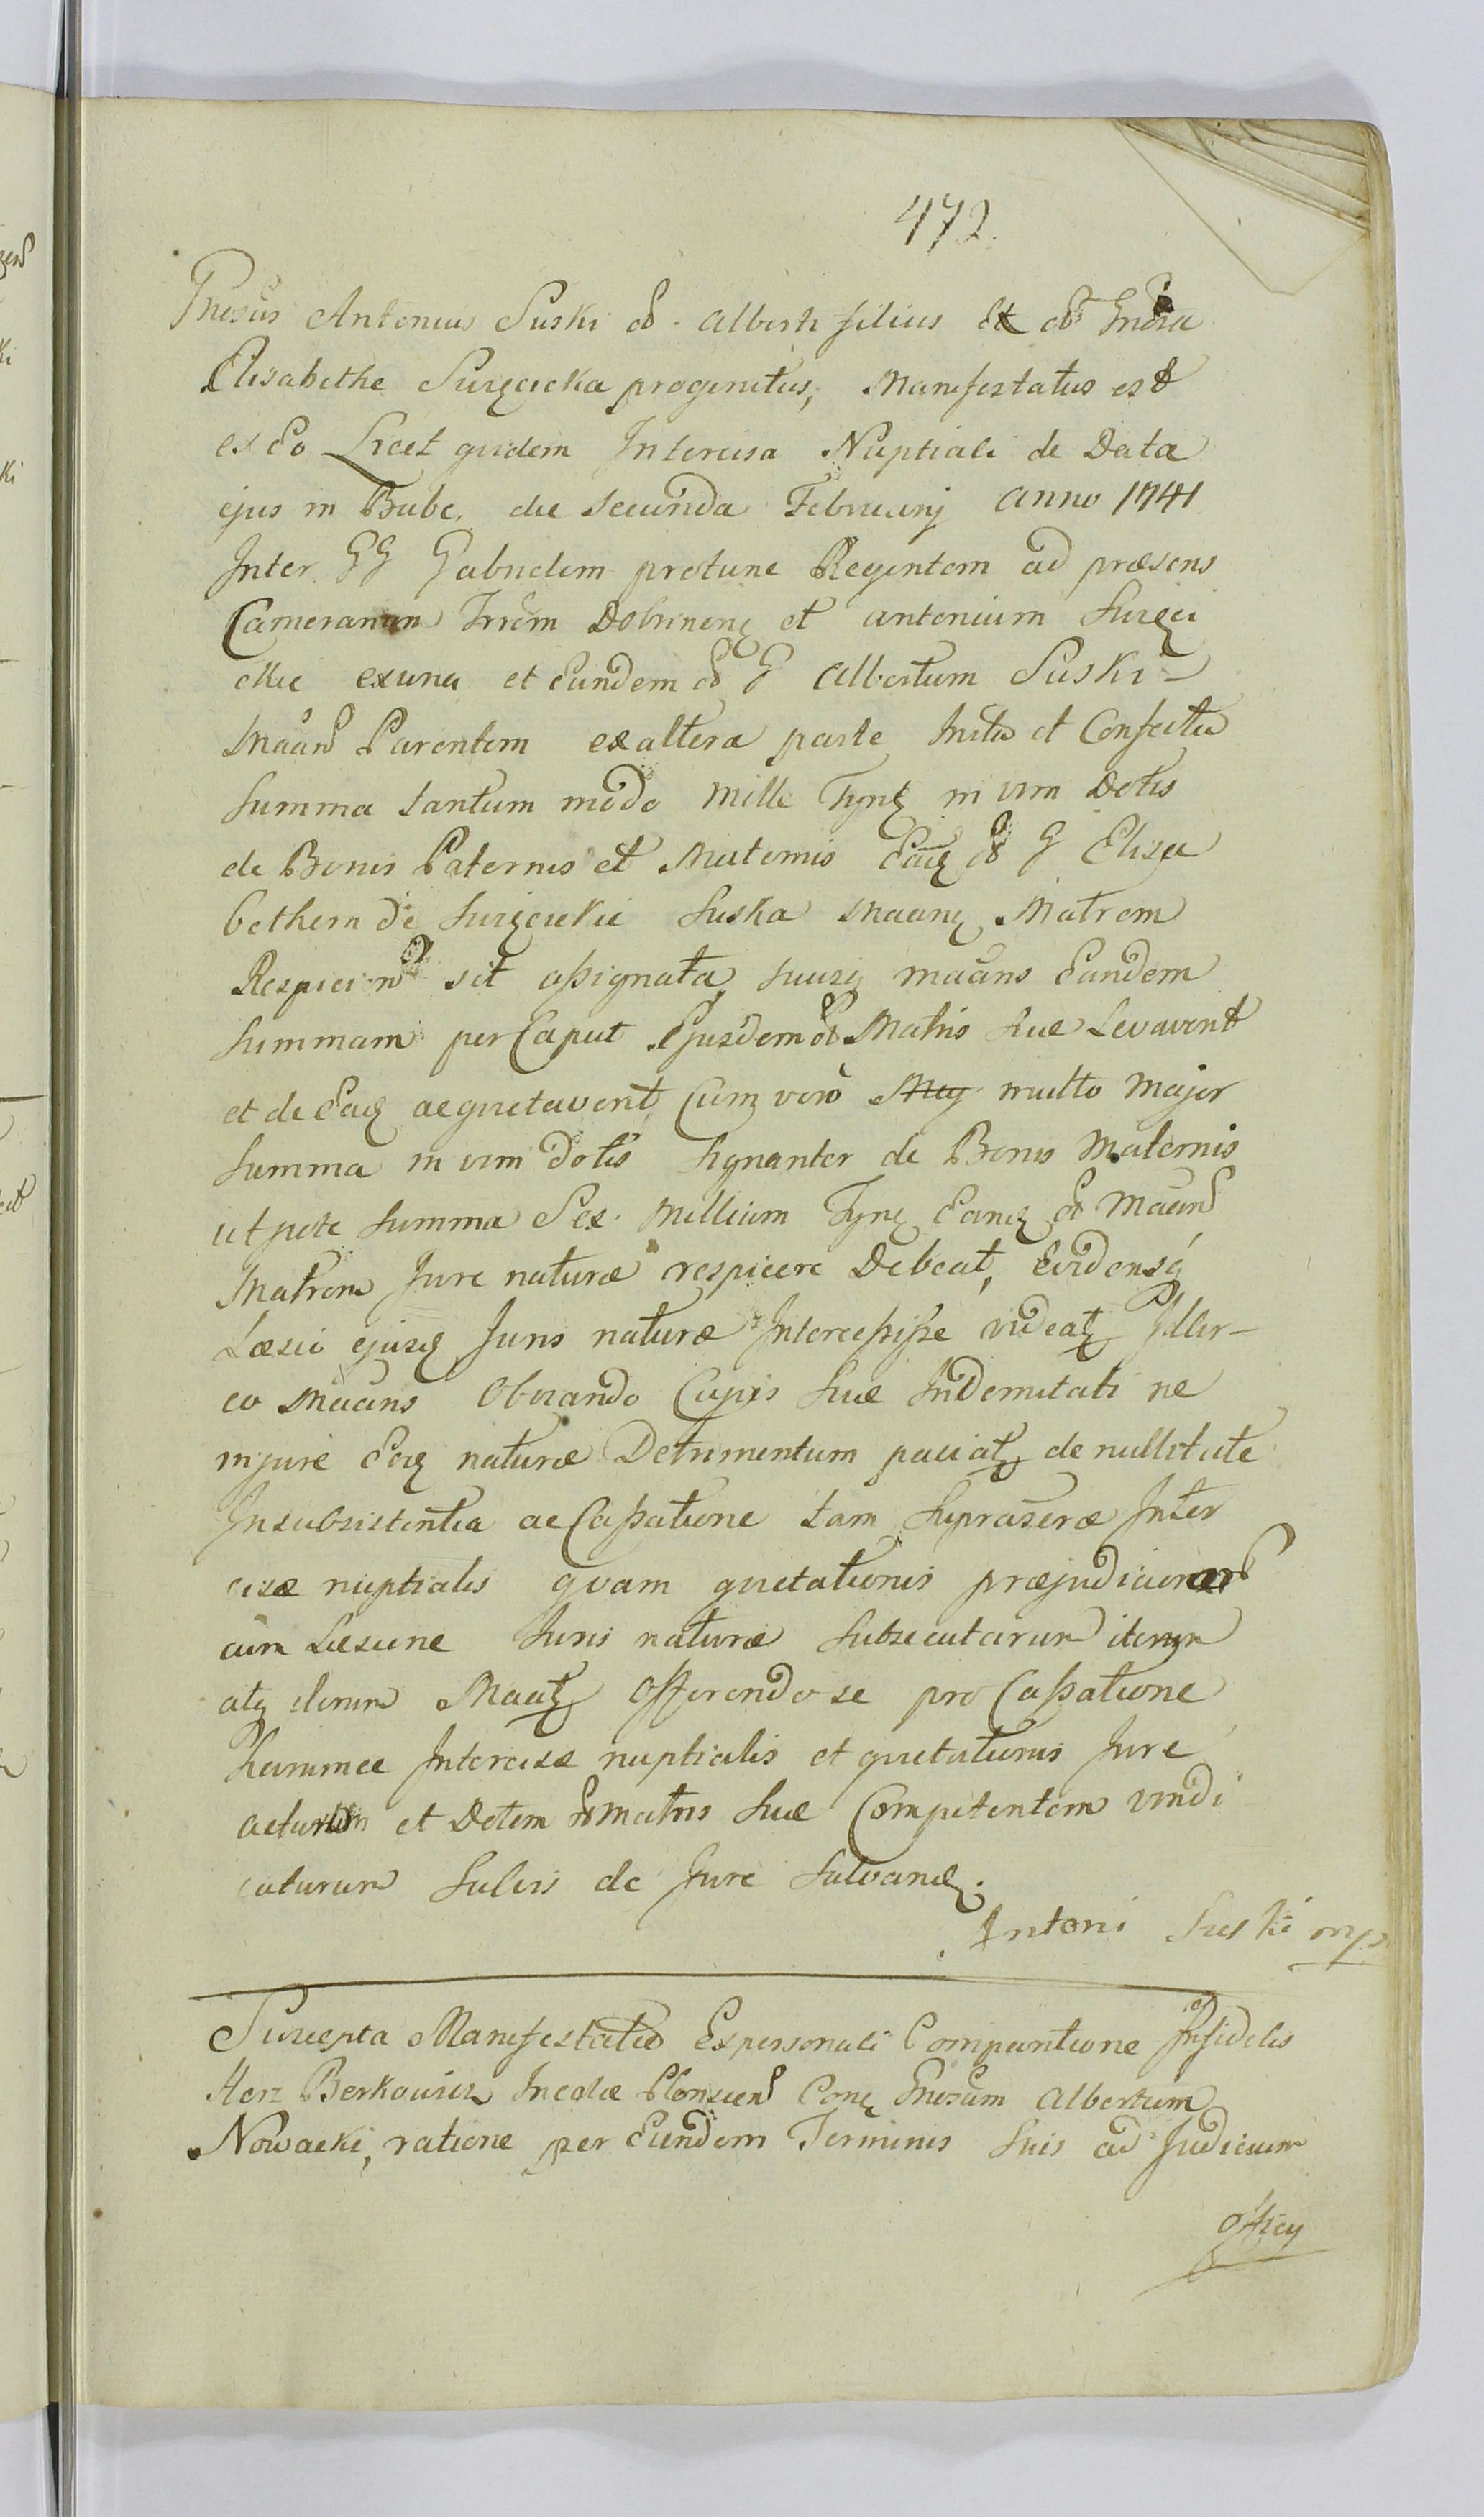 472.
Gnesus Antonius Suski ol. Alberti filius et ol. Gnosa
Elisabethe Surzycka progenitus, Manifestatus est
ex Eo Licet quidem Intercisa Nuptiali de Data
ejus in Babc. die secunda Februarij anno 1741
Inter GG Gabrielem protunc Regentem ad præsens
Camerarium Trrem Dobrinenę et antonium Surzy
ckie exuna et Eundem ol G Albertum Suski
Maann Parentem ex altera parte Inita et Confecta
Summa tantum modo Mille Tynf in vim Dotis
de Bonis Paternis et Maternis Eaq ol G Eliza
bethem de Surzyckie Suska Maanę Matrem
Respicien sit assignata, suusq maans Eandem
Summam per Caput Ejusdem ol Matris Suæ Levaverit
et de Eaq acquietaverit, Cum vero multo Major
Summa in vim Dotis Signanter de Bonis Maternis
utpote Summa Sex Millium Tynf Eanq ol Maann
Matrem Jure naturæ respicere Debeat, Evidensq
Læsio ejusq Juris naturæ Intercessisse videatz Idcir-
co Maans Obviando Cujus suæ Indemnitati ne
in jure Eoq naturæ Detrimentum paciatz de nullitate
Insubsistentia ac Cassatione tam Suprascræ Inter
cisæ nuptialis quam quietationis præjudicio
cum Læsione Juris naturæ Subsecutarum iterum
atq iterum Maatz Offerendo se pro Cassatione
hummce Intercisæ nuptialis et quietationis Jure
acturum et Dotem ol Matris Suæ Competentem vindi
caturum Salvis de Jure Salvandę.
Antoni Suski mp
Suscepta Manifestatio Ex personali Comparitione Infidelis
Herz Berkowicz Incolæ Plonscen Conę Gnesum Albertum
Nowacki, ratione per Eundem Terminis Suis ad Judicium
officy